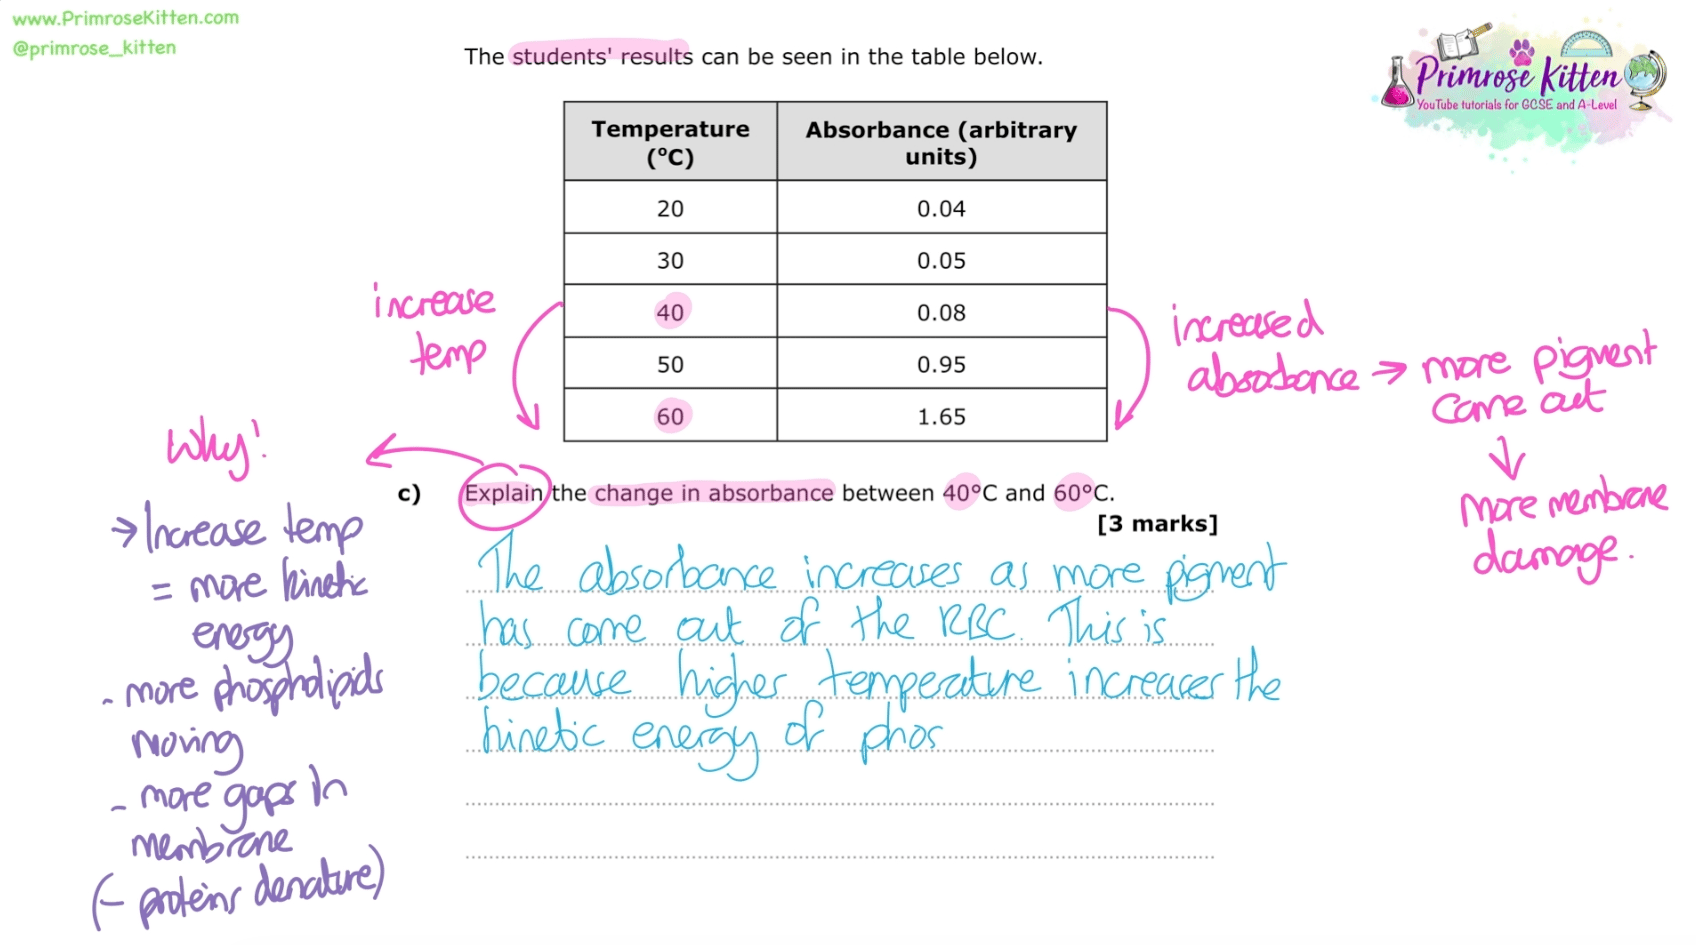 www.PrimroseKitten.com
@primrose_kitten
Primrose Kitten
YouTube tutorials for GCSE and A-Level
The students' results can be seen in the table below.
Temperature (°C) Absorbance (arbitrary units)
20 0.04
30 0.05
40 0.08
50 0.95
60 1.65
increase
temp
increased
absorbance → more pigment
come out
more membrane
damage.
Why!
c) Explain the change in absorbance between 40°C and 60°C.
[3 marks]
→ Increase temp
= more kinetic
energy
- more phospholipids
moving
- more gaps in
membrane
(- proteins denature)
The absorbance increases as more pigment
has come out of the RBC. This is
because higher temperature increases the
kinetic energy of phos